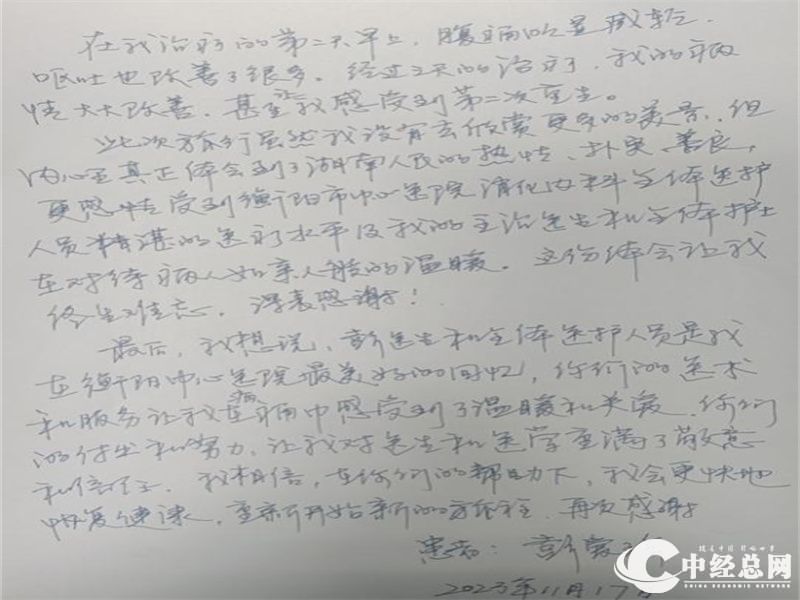 在我治疗的第二天早上，腹痛明显减轻，
呕吐也改善了很多。经过2天的治疗，我的病
情大大改善，甚至让我感受到第二次重生。
此次旅行虽然我没有去欣赏更多的美景，但
内心里真正体会到了湖南人民的热情、朴实、善良，
更感受到衡阳市中心医院消化内科全体医护
人员精湛的医疗水平及我的主治医生和全体护士
在对待病人如亲人般的温暖。这份体会让我
终生难忘，深表感谢！
最后，我想说，彭医生和全体医护人员是我
在衡阳中心医院最美好的回忆，你们的医术
和服务让我在病痛中感受到了温暖和关爱，你们
的付出和努力，让我对医生和医学充满了敬意
和信任。我相信，在你们的帮助下，我会更快地
恢复健康，重新开始新的旅程。再次感谢
患者：彭
2023年11月17日
中经总网
CHINA ECONOMIC NETWORK